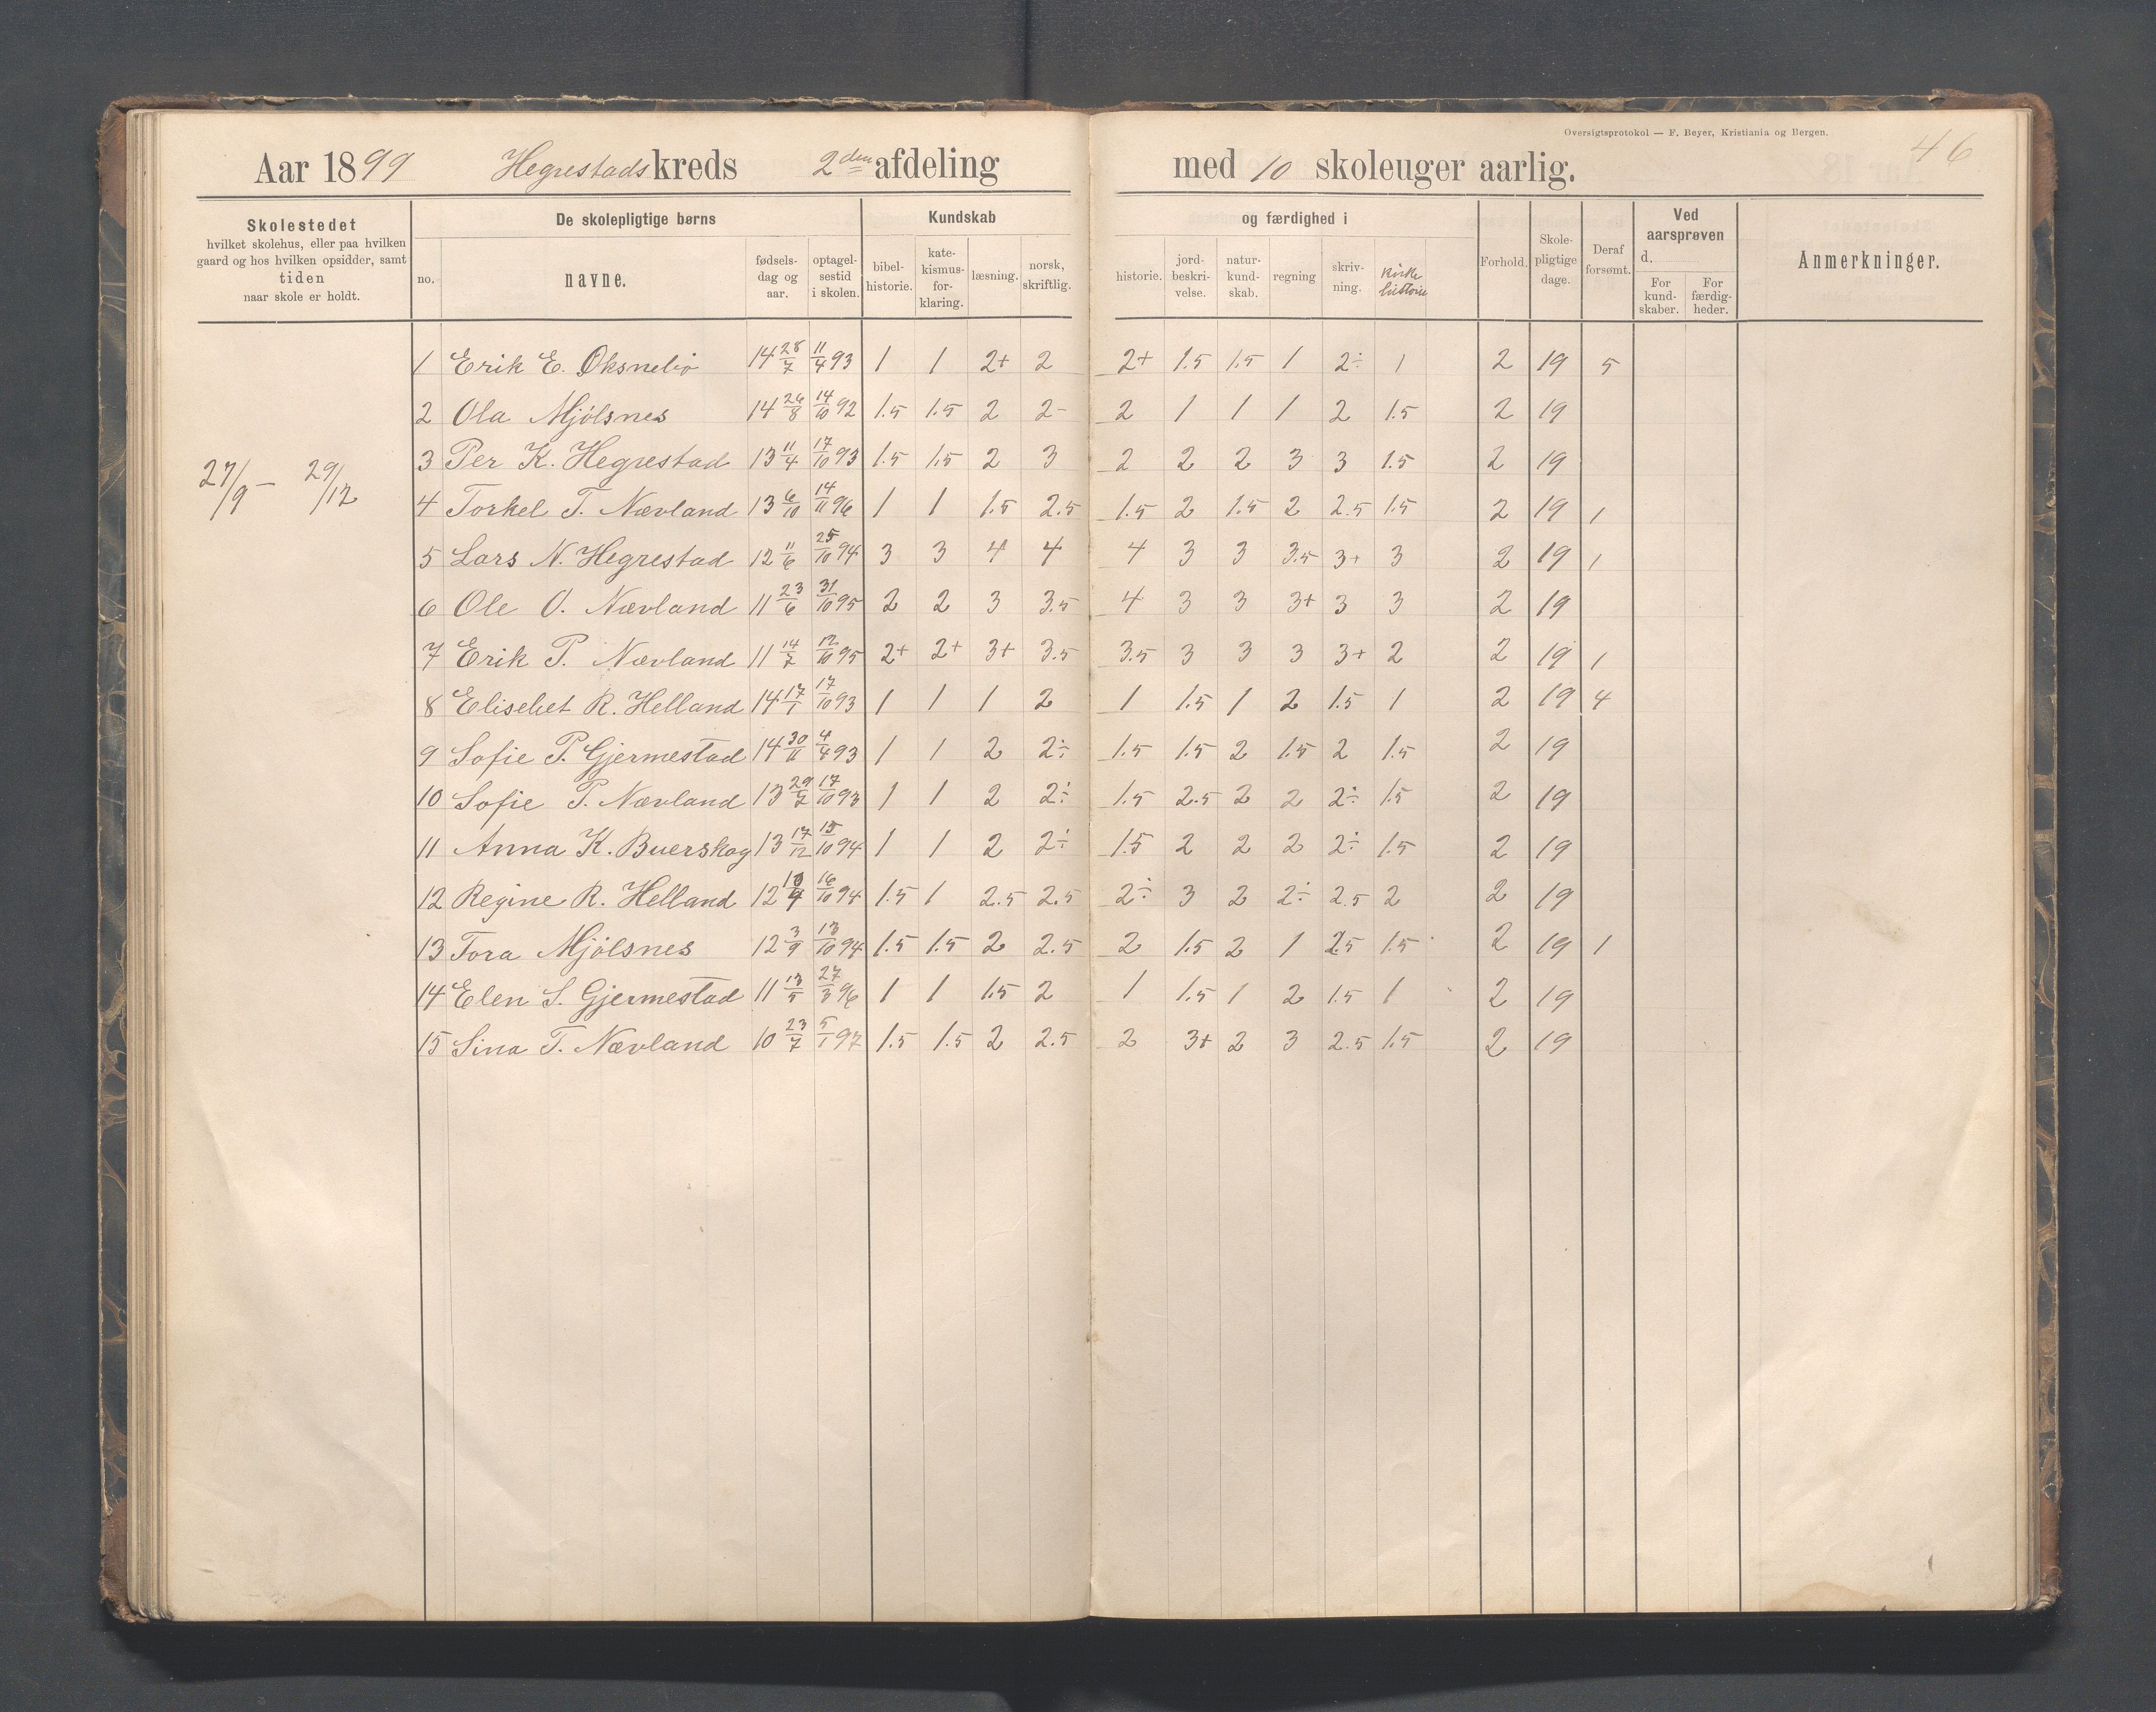 Oversigtsprotokol — F. Beyer, Kristiania og Bergen.
46
Aar 1899 Hegrestads kreds 2den afdeling med 10 skoleuger aarlig.
Skolestedet hvilket skolehus, eller paa hvilken gaard og hos hvilken opsidder, samt tiden naar skole er holdt.
De skolepligtige børns
no. navne. fødsels-dag og aar. optagel-sestid i skolen.
Kundskab og færdighed i
bibel-historie. kate-kismus-for-klaring. læsning. norsk, skriftlig. historie. jord-beskri-velse. natur-kund-skab. regning skriv-ning. Kirke historie
Forhold. Skole-pligtige dage. Deraf forsømt.
Ved aarsprøven d.
For kund-skaber. For færdig-heder.
Anmerkninger.
27/9 – 29/12
1 Erik E. Oksnebø 14 28/7 11/4 93 1 1 2+ 2 2+ 1.5 1.5 1 2÷ 1 2 19 5
2 Ola Mjølsnes 14 26/8 14/10 92 1.5 1.5 2 2- 2 1 1 1 2 1.5 2 19
3 Per K. Hegrestad 13 11/4 17/10 93 1.5 1.5 2 3 2 2 2 3 3 1.5 2 19
4 Torkel T. Nævland 13 6/10 14/11 96 1 1 1.5 2.5 1.5 2 1.5 2 2.5 1.5 2 19 1
5 Lars N. Hegrestad 12 11/6 25/10 94 3 3 4 4 4 3 3 3.5 3+ 3 2 19 1
6 Ole O. Nævland 11 23/6 31/10 95 2 2 3 3.5 4 3 3 3+ 3 3 2 19
7 Erik P. Nævland 11 14/7 12/10 95 2+ 2+ 3+ 3.5 3.5 3 3 3 3+ 2 2 19 1
8 Elisebet R. Helland 14 17/1 17/10 93 1 1 1 2 1 1.5 1 2 1.5 1 2 19 4
9 Sofie P. Gjermestad 14 30/11 4/4 93 1 1 2 2÷ 1.5 1.5 2 1.5 2 1.5 2 19
10 Sofie P. Nævland 13 29/7 17/10 93 1 1 2 2÷ 1.5 2.5 2 2 2÷ 1.5 2 19
11 Anna K. Buerskog 13 17/12 15/10 94 1 1 2 2÷ 1.5 2 2 2 2÷ 1.5 2 19
12 Regine R. Helland 12 10/4 16/10 94 1.5 1 2.5 2.5 2÷ 3 2 2÷ 2.5 2 2 19
13 Tora Mjølsnes 12 3/9 13/10 94 1.5 1.5 2 2.5 2 1.5 2 1 2.5 1.5 2 19 1
14 Elen S. Gjermestad 11 13/5 27/3 96 1 1 1.5 2 1 1.5 1 2 1.5 1 2 19
15 Sina T. Nævland 10 23/7 5/1 97 1.5 1.5 2 2.5 2 3+ 2 3 2.5 1.5 2 19